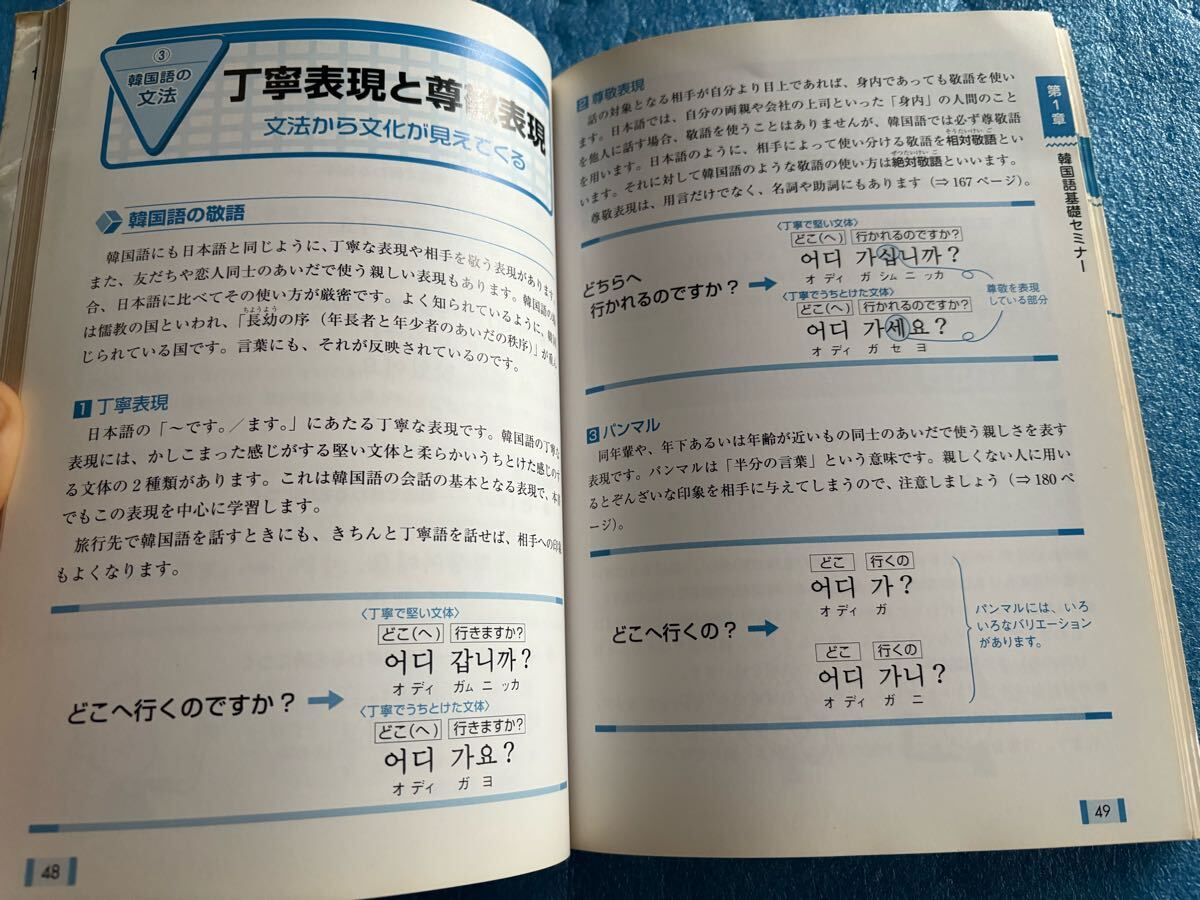 ③
韓国語の
文法
丁寧表現と尊敬表現
文法から文化が見えてくる
韓国語の敬語
韓国語にも日本語と同じように、丁寧な表現や相手を敬う表現があります。
また、友だちや恋人同士のあいだで使う親しい表現もあります。韓国語の
合、日本語に比べてその使い方が厳密です。よく知られているように、
は儒教の国といわれ、「長幼の序（年長者と年少者のあいだの秩序）」が
ちようよう
じられている国です。言葉にも、それが反映されているのです。
1 丁寧表現
日本語の「～です。／ます。」にあたる丁寧な表現です。韓国語の丁寧な
表現には、かしこまった感じがする堅い文体と柔らかいうちとけた感じのす
る文体の2種類があります。これは韓国語の会話の基本となる表現で、本書
でもこの表現を中心に学習します。
旅行先で韓国語を話すときにも、きちんと丁寧語を話せば、相手への印象
もよくなります。
〈丁寧で堅い文体〉
どこ(へ) 行きますか?
어디 갑니까?
オ ディ ガム ニ ッカ
どこへ行くのですか？
〈丁寧でうちとけた文体〉
どこ(へ) 行きますか?
어디 가요?
オ ディ ガ ヨ
48
2 尊敬表現
話の対象となる相手が自分より目上であれば、身内であっても敬語を使い
ます。日本語では、自分の両親や会社の上司といった「身内」の人間のこと
を他人に話す場合、敬語を使うことはありませんが、韓国語では必ず尊敬語
を用います。日本語のように、相手によって使い分ける敬語を相対敬語とい
そうたいけい ご
います。それに対して韓国語のような敬語の使い方は絶対敬語といいます。
ぜつたいけい ご
尊敬表現は、用言だけでなく、名詞や助詞にもあります（⇒167ページ）。
〈丁寧で堅い文体〉
どこ(へ) 行かれるのですか?
어디 가십니까?
オ ディ ガ シム ニ ッカ
どちらへ
行かれるのですか？
〈丁寧でうちとけた文体〉
どこ(へ) 行かれるのですか?
어디 가세요?
オ ディ ガ セ ヨ
尊敬を表現
している部分
3 パンマル
同年輩や、年下あるいは年齢が近いもの同士のあいだで使う親しさを表す
表現です。パンマルは「半分の言葉」という意味です。親しくない人に用い
るとぞんざいな印象を相手に与えてしまうので、注意しましょう（⇒180ペ
ージ）。
どこ 行くの
어디 가?
オ ディ ガ
どこへ行くの？
どこ 行くの
어디 가니?
オ ディ ガ ニ
パンマルには、いろ
いろなバリエーション
があります。
第1章
韓国語基礎セミナー
49